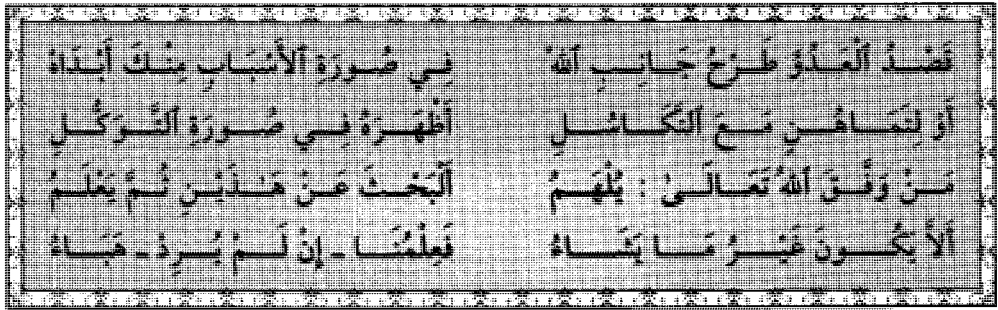 قَصْدُ ٱلْعَدُوِّ طَرْحُ جَانِبِ ٱللهْ فِي صُورَةِ ٱلأَسْبَابِ مِنْكَ أَبْدَاهْ
أَوْ لِتَمَاهُنٍ مَعَ ٱلتَّكَاسُلِ أَظْهَرَهُ فِي صُورَةِ ٱلتَّوَكُّلِ
مَنْ وَفَّقَ ٱللهُ تَعَالَىٰ : يُلْهَمُ ٱلْبَحْثَ عَنْ هَـٰذَيْنِ ثُمَّ يَعْلَمُ
أَلاَّ يَكُونَ غَيْرُ مَا يَشَاءُ فَعِلْمُنَا ـ إِنْ لَمْ يُرِدْ ـ هَبَاءُ